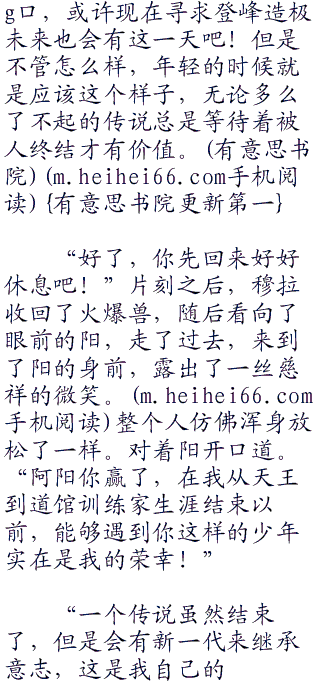 g口，或许现在寻求登峰造极
未来也会有这一天吧！但是
不管怎么样，年轻的时候就
是应该这个样子，无论多么
了不起的传说总是等待着被
人终结才有价值。(有意思书
院)(m.heihei66.com手机阅
读){有意思书院更新第一}
“好了，你先回来好好
休息吧！”片刻之后，穆拉
收回了火爆兽，随后看向了
眼前的阳，走了过去，来到
了阳的身前，露出了一丝慈
祥的微笑。(m.heihei66.com
手机阅读)整个人仿佛浑身放
松了一样。对着阳开口道。
“阿阳你赢了，在我从天王
到道馆训练家生涯结束以
前，能够遇到你这样的少年
实在是我的荣幸！”
“一个传说虽然结束
了，但是会有新一代来继承
意志，这是我自己的